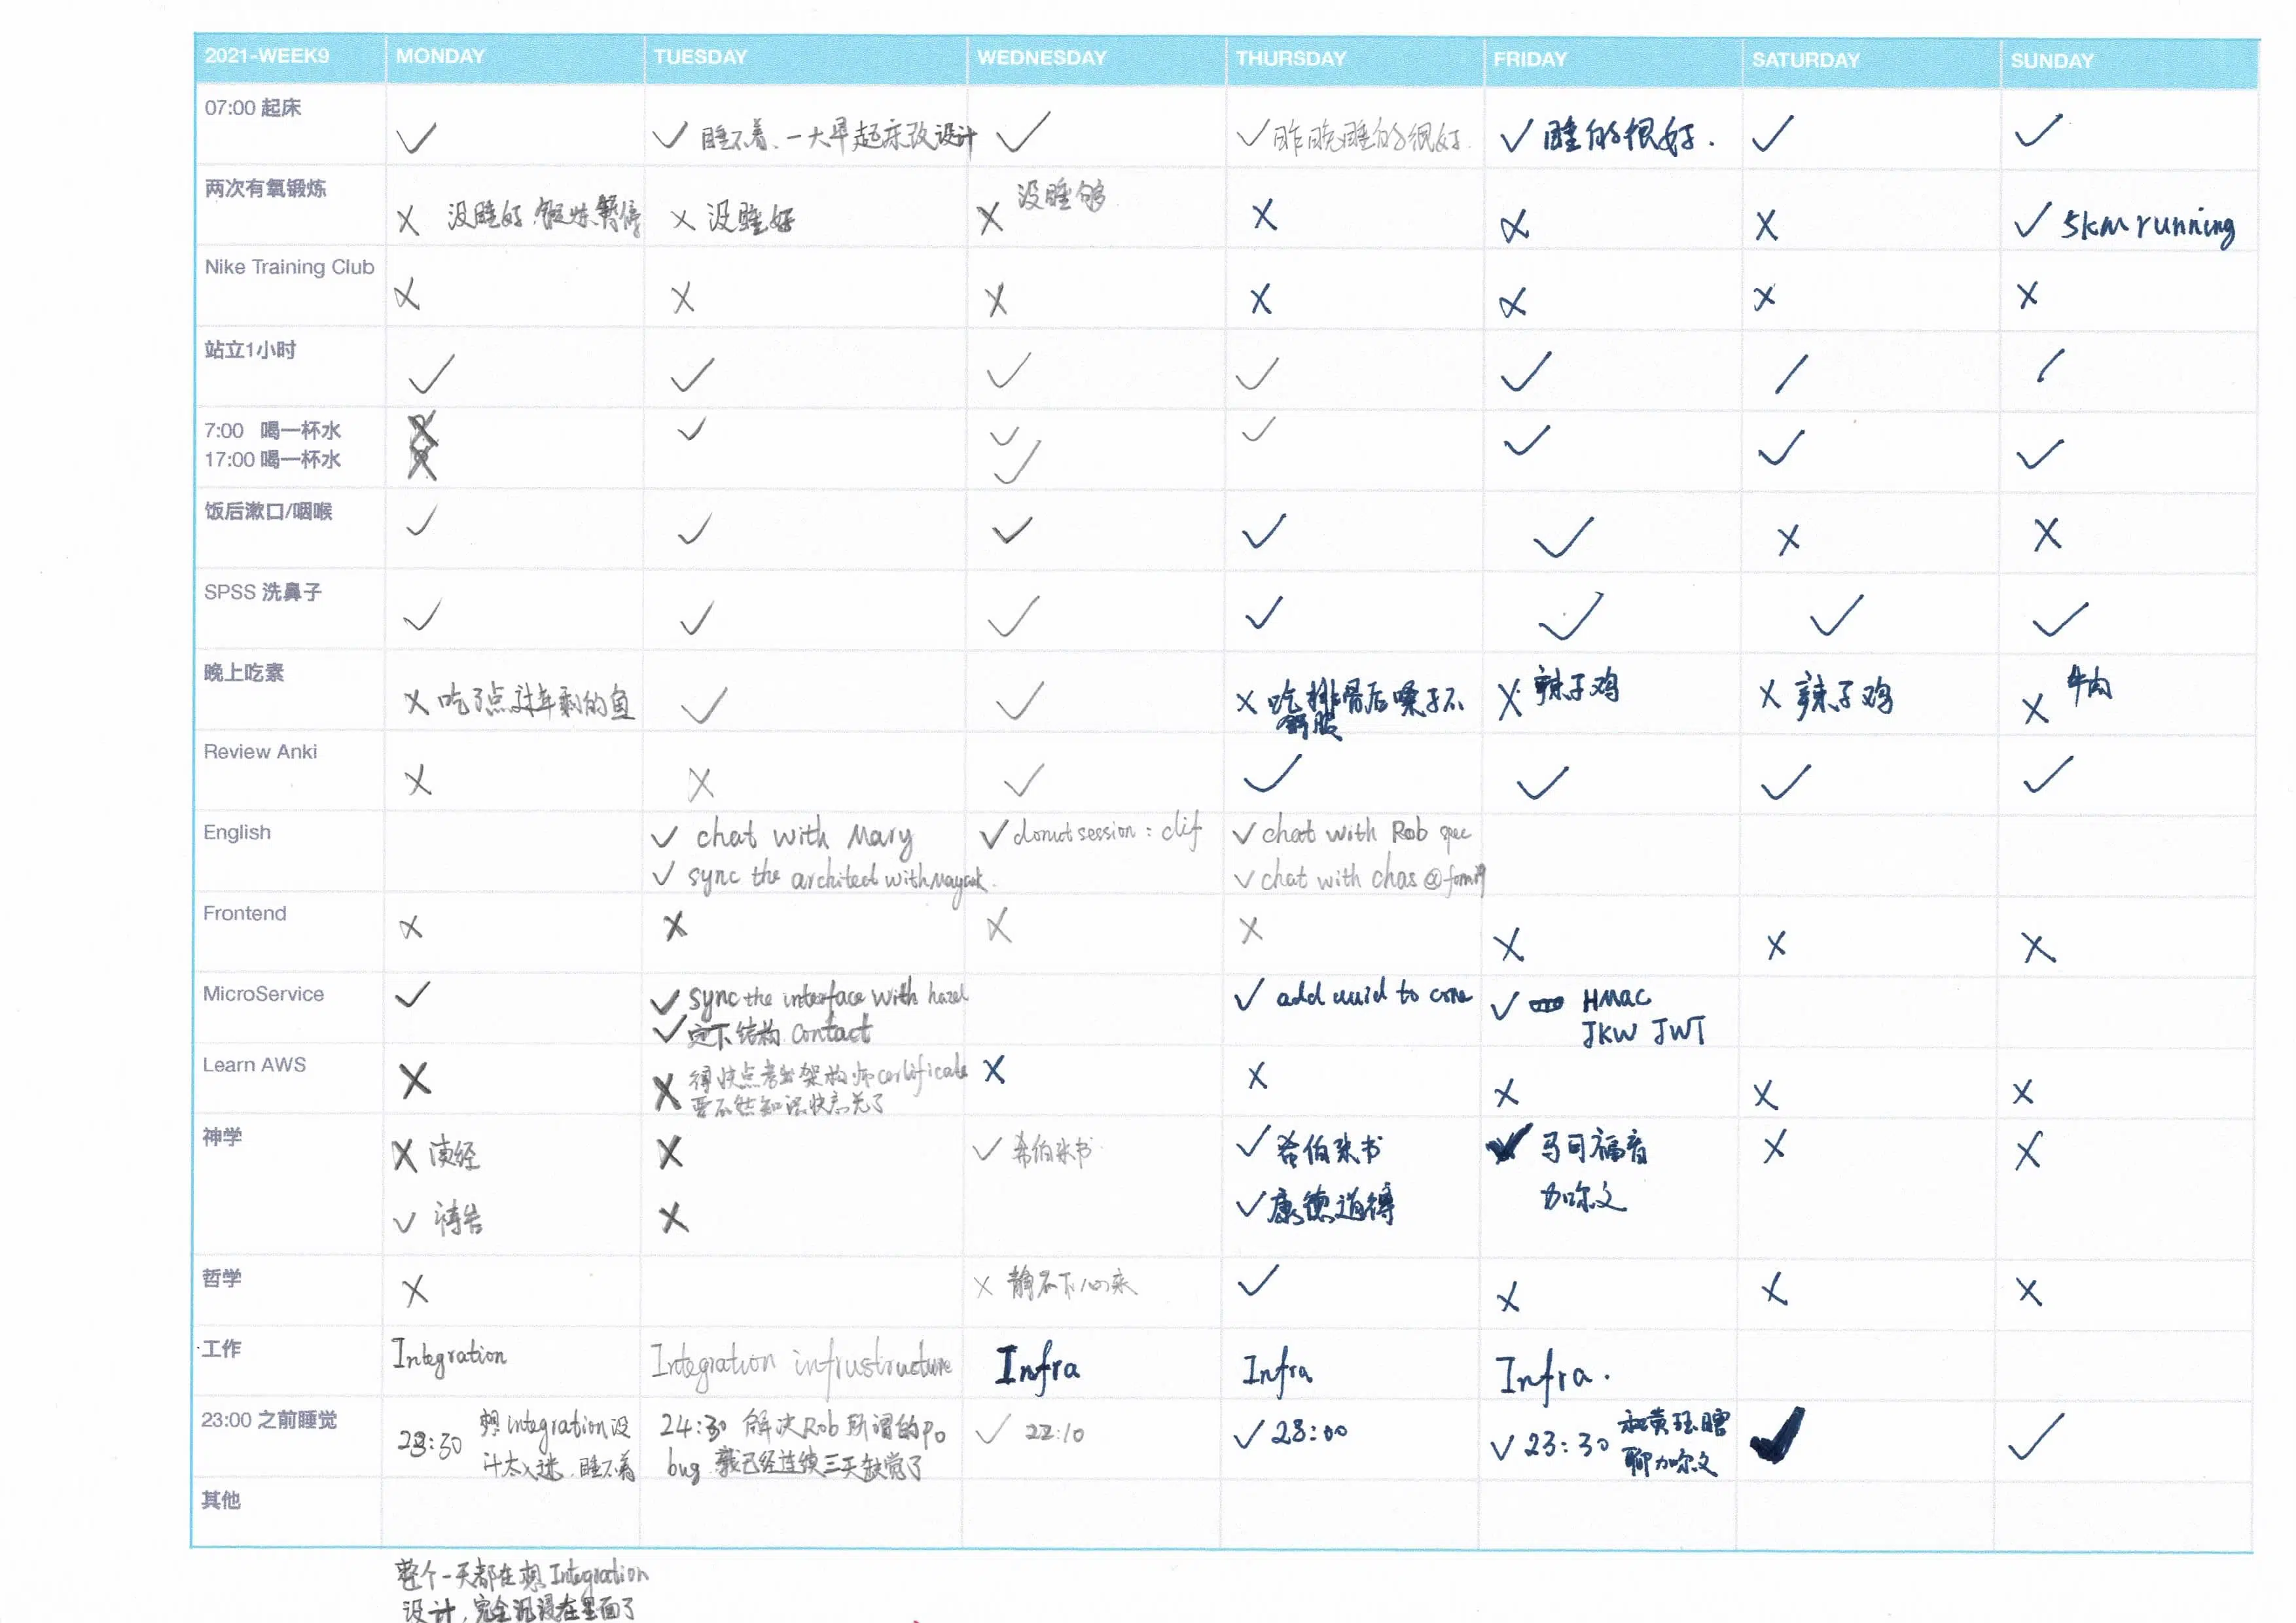 2021-WEEK9 MONDAY TUESDAY WEDNESDAY THURSDAY FRIDAY SATURDAY SUNDAY
07:00 起床
✓ ✓ 睡不着、一大早起床改设计 ✓ ✓ 昨晚睡的很好. ✓ 睡的很好. ✓ ✓
两次有氧锻炼
X 没睡好 锻炼暂停 X 没睡好 X 没睡够 X X X ✓ 5km running
Nike Training Club
X X X X X X X
站立1小时
✓ ✓ ✓ ✓ ✓ / /
7:00 喝一杯水
17:00 喝一杯水
X X ✓ ✓ ✓ ✓ ✓ ✓ ✓
饭后漱口/咽喉
✓ ✓ ✓ ✓ ✓ X X
SPSS 洗鼻子
✓ ✓ ✓ ✓ ✓ ✓ ✓
晚上吃素
X 吃了点过年剩的鱼 ✓ ✓ X 吃排骨后嗓子不舒服 X 辣子鸡 X 辣子鸡 X 牛肉
Review Anki
X X ✓ ✓ ✓ ✓ ✓
English
✓ chat with Mary ✓ donut session : clif ✓ chat with Rob
✓ sync the architect with ✓ chat with chas
Frontend
X X X X X X X
MicroService
✓ ✓ sync the interface with hazel ✓ add uuid to ✓ HMAC
✓ 定下结构 contact JKW JWT
Learn AWS
X X 得快点考出架构师 certificate X X X X X
要不然知识快忘光了
神学
X 读经 X ✓ 希伯来书 ✓ 希伯来书 ✓ 马可福音 X X
✓ 祷告 X ✓ 康德道德 加尔文
哲学
X X 静不下心来 ✓ X X X
工作
Integration Integration infrustructure Infra Infra Infra.
23:00 之前睡觉
23:30 想 integration 设 24:30 解决 Rob 所谓的 PO ✓ 22:10 ✓ 23:00 ✓ 23:30 ✓ ✓
计太入迷. 睡不着 bug 我已经连续三天缺觉了 聊加尔文
其他
整个一天都在想 Integration
设计, 完全沉浸在里面了